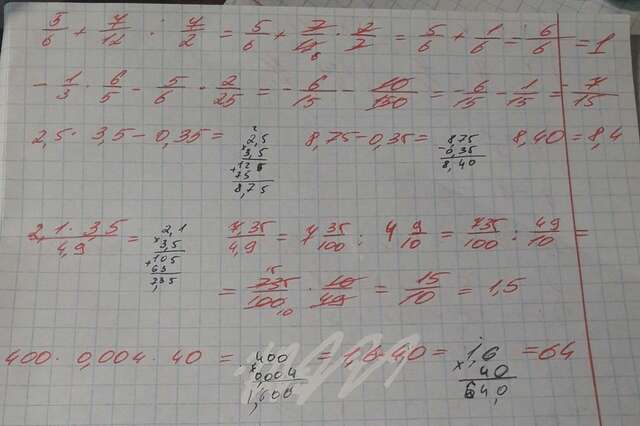 5/6 + 7/12 : 7/2 = 5/6 + 7/12 6 · 2/7 = 5/6 + 1/6 = 6/6 = 1
- 1/3 · 6/5 - 5/6 · 2/25 = - 6/15 - 10/150 = - 6/15 - 1/15 = - 7/15
2,5 · 3,5 - 0,35 = 2,5 × 3,5 + 125 75 8,75 8,75 - 0,35 = 8,75 - 0,35 8,40 8,40 = 8,4
2,1 · 3,5 / 4,9 = 2,1 × 3,5 + 105 63 7,35 7,35/4,9 = 7 35/100 : 4 9/10 = 735/100 : 49/10 =
= 735 15/100 10 · 10/49 = 15/10 = 1,5
400 · 0,004 · 40 = 400 × 0,004 1,600 = 1,6 · 40 = 1,6 × 40 64,0 = 64